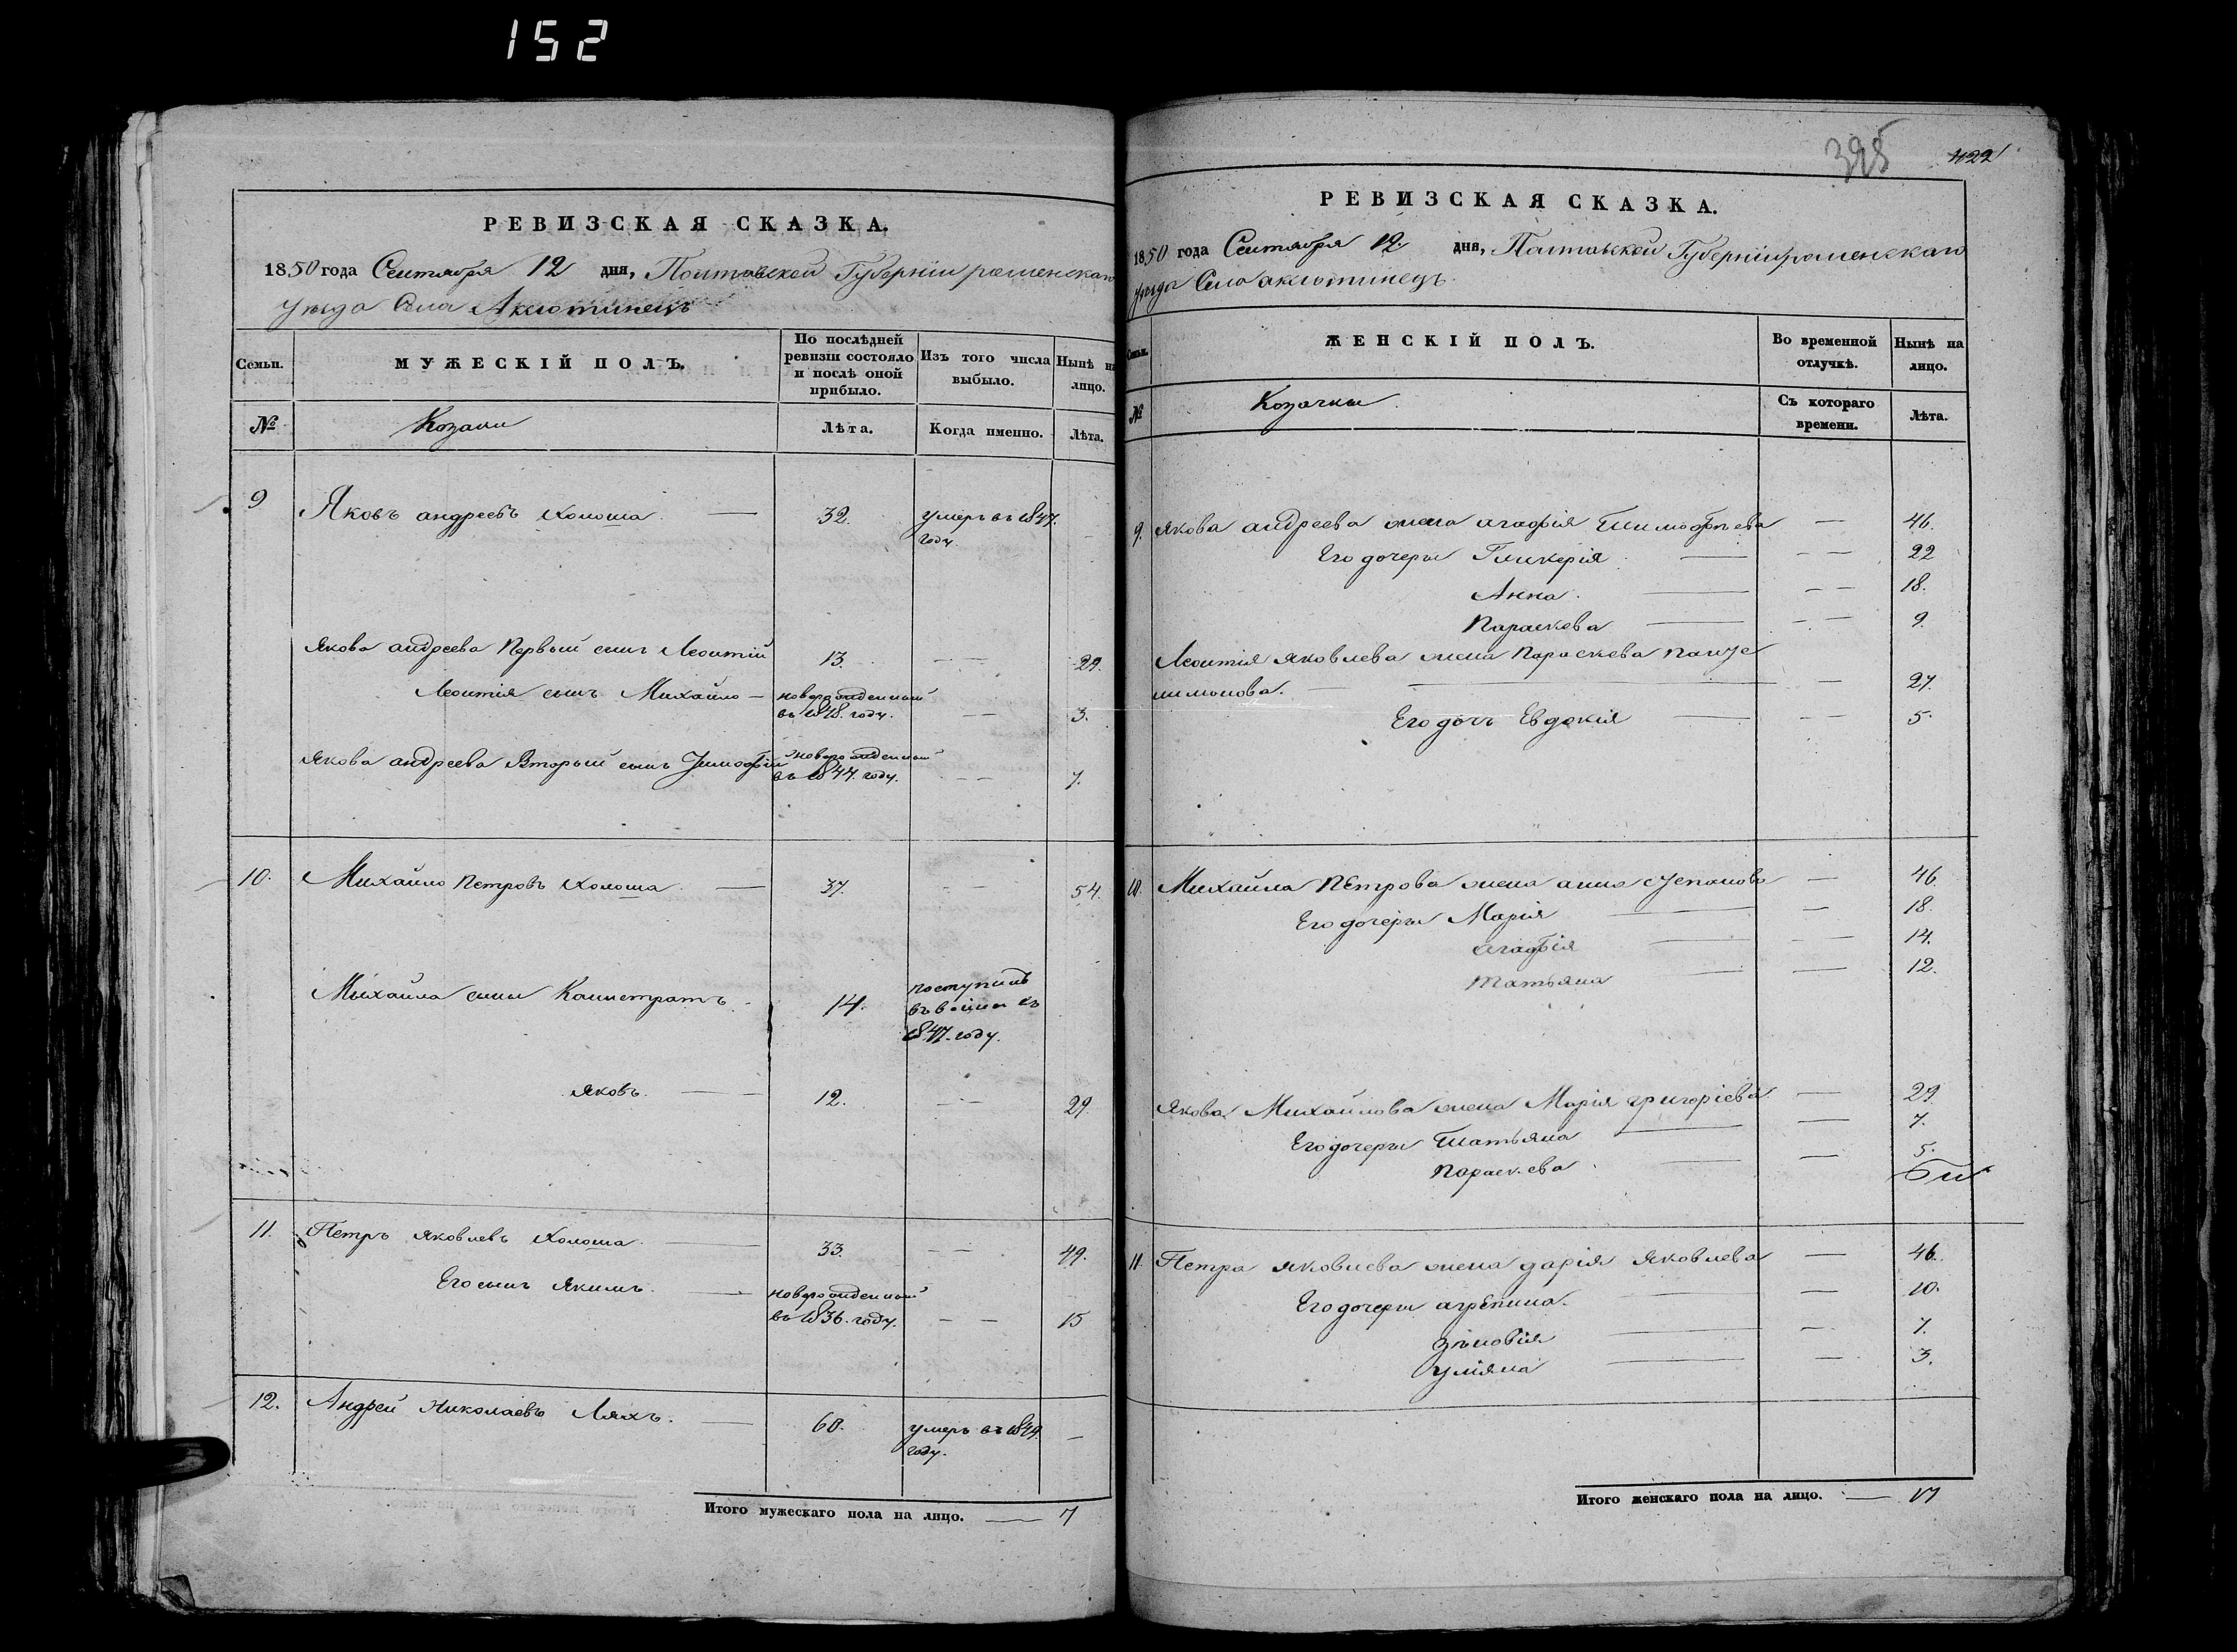 152
РЕВИЗСКАЯ СКАЗКА.
1850 года Сентября 12 дня, Полтавской Губерніи роменскаго
уезда Села Аксютинецъ
Семьи.
МУЖЕСКІЙ ПОЛЪ.
По послѣдней ревизіи состояло и послѣ оной прибыло.
Изъ того числа выбыло.
Нынѣ на лицо.
№
Козаки
Лѣта.
Когда именно.
Лѣта.
9 Яковъ андреевъ Холоша 32. умеръ въ 1847. году. -
Якова андреева Первый сынъ Леонтій 13. 29.
Леонтія сынъ Михайло новорожденный въ 1848. году. 3.
Якова андреева Вторый сынъ Тимофій новорожденный въ 1844. году. 7.
10. Михайло Петровъ Холоша 37. 54.
Михайла сыны Калистратъ 14. поступилъ въ 1847. году.
яковъ 12. 29.
11. Петръ яковлевъ Холоша 33. 49.
Его сынъ Якимъ новорожденный въ 1836. году. 15
12. Андрей Николаевъ Ляхъ. 60. умеръ въ 1849. году. —
Итого мужескаго пола на лицо. — 7
395
422
РЕВИЗСКАЯ СКАЗКА.
1850 года Сентября 12 дня, Полтавской Губерніи роменскаго
уезда Села аксютинецъ
Семьи.
ЖЕНСКІЙ ПОЛЪ.
Во временной отлучкѣ.
Нынѣ на лицо.
№
Козачки
Съ котораго времени.
Лѣта.
9. якова андреева жена агафія Тимофѣева — 46.
Его дочери Гликерія 22
Анна 18.
Параскева 9.
Леонтія яковлева жена Параскева
27.
Его дочь Евдокія 5.
10. Михайла Петрова жена анна степанова — 46
Его дочери Марія 18.
агафія 14.
татьяна 12.
якова Михайлова жена Марія григоріева — 29
Его дочери Татьяна 7.
параскева 5.
11. Петра яковлева жена дарія яковлева — 46.
Его дочери агрепина. 10.
зѣновія 7.
уліяна 3.
Итого женскаго пола на лицо. — 17